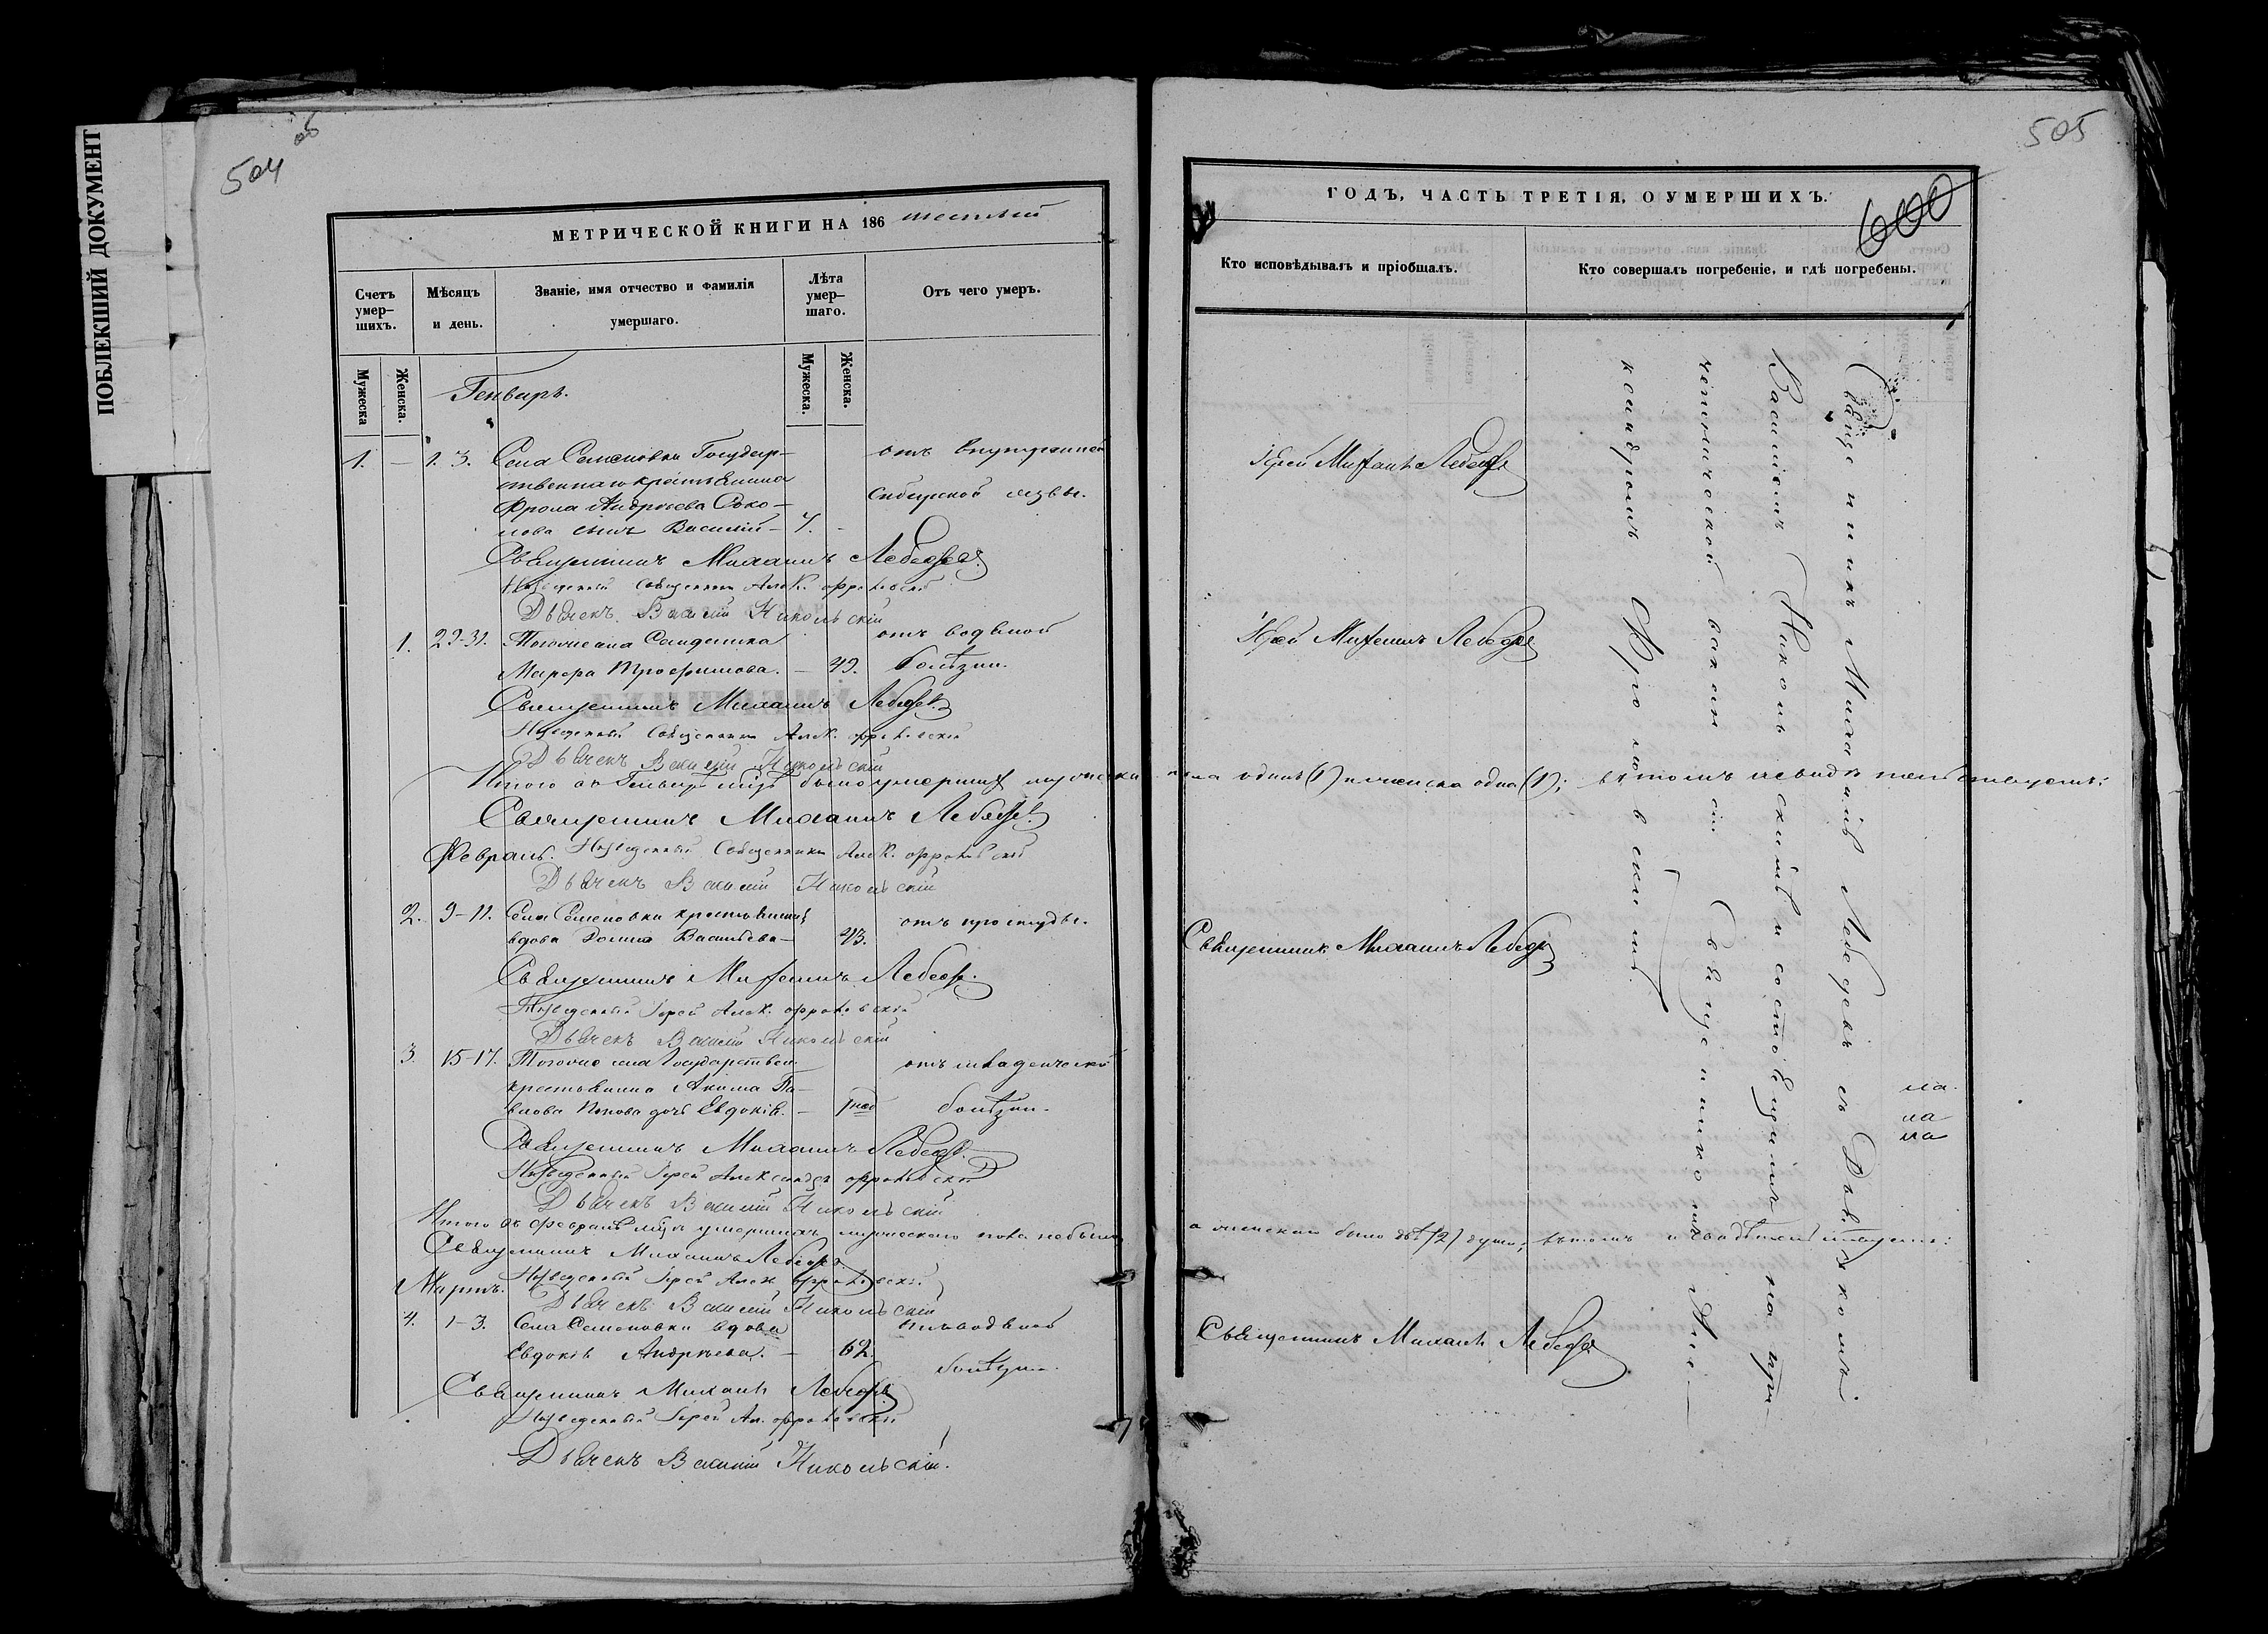 ПОБЛЕКШИЙ ДОКУМЕНТ
504 об
МЕТРИЧЕСКОЙ КНИГИ НА 186 шестый
Счетъ умер-шихъ.
Мѣсяцъ и день.
Званіе, имя отчество и фамилія умершаго.
Лѣта умер-шаго.
Отъ чего умеръ.
Мужеска
Женска.
Мужеска.
Женска.
Генварь.
1. — 1. 3. Села Семеновки Государ- отъ внутренней
ственнаго крестьянина
Фрола Андреева Соко- Сибирской язвы.
лова сынъ Василій — 7. -
Священникъ Михаилъ Лебедевъ
Дьячекъ Василій Никольскій
1. 29-31. Тогоже села Солдатка отъ водяной
Марфа Трофимова. — 49. болѣзни.
Священникъ Михаилъ Лебедевъ
Дьячекъ Василій Никольскій
Итого въ Генварѣ мцѣ было умершихъ мужеска
Священникъ Михаилъ Лебедевъ
Февраль.
Дьячекъ Василій Никольскій
2. 9-11. Села Семеновки крестьянская отъ простуды.
вдова Васильева — 43.
Священникъ Михаилъ Лебедевъ
Дьячекъ Василій Никольскій
3. 15-17. Тогоже села Государствен. отъ младенческой
крестьянина Акима Па-
влова Попова дочь Евдокія. — 1 нед болѣзни.
Священникъ Михаилъ Лебедевъ
Дьячекъ Василій Никольскій
Итого въ Февралѣ мцѣ умершихъ мужескаго пола небыло
Священникъ Михаилъ Лебедевъ
Мартъ.
Дьячекъ Василій Никольскій
4. 1-3. Села Семеновки вдова отъ водяной
Евдокія Андреева. — 62. болѣзни.
Священникъ Михаилъ Лебедевъ
Дьячекъ Василій Никольскій.
505
600
ГОДЪ, ЧАСТЬ ТРЕТІЯ, О УМЕРШИХЪ.
Кто исповѣдывалъ и пріобщалъ.
Кто совершалъ погребеніе, и гдѣ погребены.
Іерей Михаилъ Лебедевъ
Іерей Михаилъ Лебедевъ
пола одинъ (1) и женска одна (1); въ томъ и свидѣтельствуемъ:
Священникъ Михаилъ Лебедевъ
а женскаго было двѣ /2/ души; въ томъ и свидѣтельствуемъ:
Священникъ Михаилъ Лебедевъ
Священникъ Михаилъ Лебедевъ съ Дьячкомъ
Василіемъ Никольскимъ и состоящимъ на при-
четнической вакансіи Священникомъ Але-
ксандромъ
ла.
ла
ла